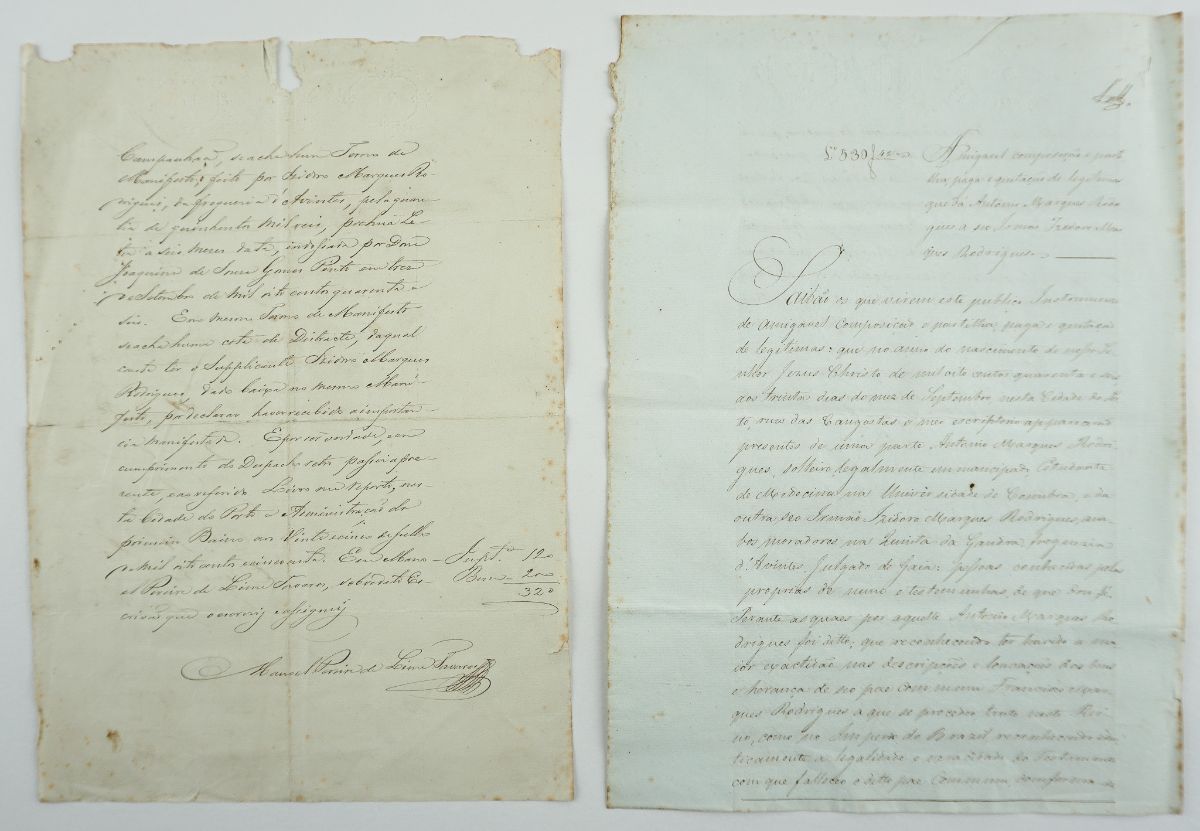 Campanhaã, se acha hum Termo de
Manifesto, feito por Izidro Marques Ro-
drigues, da freguezia d'Avintes, pela quan-
tia de quinhentos mil reis, por huma Le-
tra a seis mezes data, por Dona
Joaquina de Souza Gomes Pinto em trez
de Setembro de mil oito centos quarenta e
seis. E no mesmo Termo de Manifesto
se acha huma cota de Distracte, da qual
consta ter o Supplicante Izidro Marques
Rodrigues, dado baixa no mesmo Mani-
festo, por declarar haver recebido a importan-
cia manifestada. E por ser verdade e em
cumprimento do Despacho retro passei a pre-
zente, e ao referido Livro me reporto, nes-
ta Cidade do Porto e Administração do
primeiro Bairro aos vinte de Julho
de mil oito centos e cincoenta. Eu Mano-
el Pereira de Lima Tavares, Es-
crivão que o escrevy e assigney
120
Busca 200
320
Manoel Pereira de Lima Tavares
Amigavel composição e parti-
lha, paga e quitação de legitima
que dá Antonio Marques Rodri-
gues a seo Irmão Izidoro Mar-
ques Rodrigues.
Saibão os que virem este publico Instromento
de amigavel composição e partilha, paga e quitaçaõ
de legitimas: que no anno do nascimento de nosso Se-
nhor Jezus Christo de mil oito centos quarenta e seis
aos trinta dias do mez de Septembro, nesta Cidade do Por-
to, rua das Cangostas e meo escriptorio apparecerão
presentes de uma parte Antonio Marques Rodri-
gues, solteiro legalmente emmancipado, Estudante
de Medecina na Universidade de Coimbra, e da
outra seo Irmão Izidoro Marques Rodrigues, am-
bos moradores na Quinta da Gandra, freguezia
d'Avintes, Julgado de Gaia: pessoas conhecidas pelas
proprias de mim e testemunhas, de que dou fé.
Perante as quaes por aquelle Antonio Marques Ro-
drigues foi ditto; que reconhecendo ter havido a ma-
ior exactidão nas descripções e louvação dos bens
e herança de seo pae commum Francisco Mar-
ques Rodrigues a que se procedeo tanto neste Rei-
no, como no Imperio do Brazil, reconhecendo iden-
ticamente a legalidade e veracidade do Testamento
com que falleceo o ditto pae commum, conforma-se